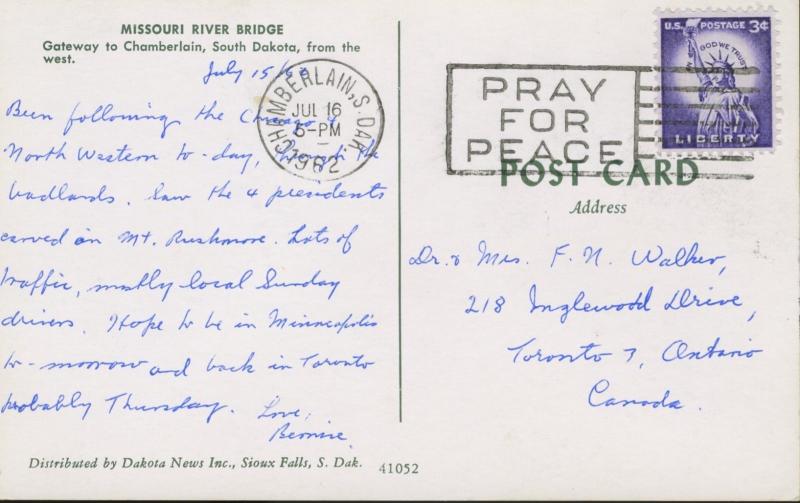 MISSOURI RIVER BRIDGE
Gateway to Chamberlain, South Dakota, from the
west.
July 15/62
Been following the Chicago &
North Western to-day, through the
badlands. Saw the 4 presidents
carved on Mt. Rushmore. Lots of
traffic, mostly local Sunday
drivers. Hope to be in Minneapolis
to-morrow and back in Toronto
probably Thursday. Love,
Bernie.
Distributed by Dakota News Inc., Sioux Falls, S. Dak.
41052
CHAMBERLAIN, S. DAK.
JUL 16
6-PM
1962
PRAY
FOR
PEACE
U.S. POSTAGE 3¢
IN GOD WE TRUST
LIBERTY
POST CARD
Address
Dr. & Mrs. F. N. Walker,
218 Inglewood Drive,
Toronto 7, Ontario
Canada.